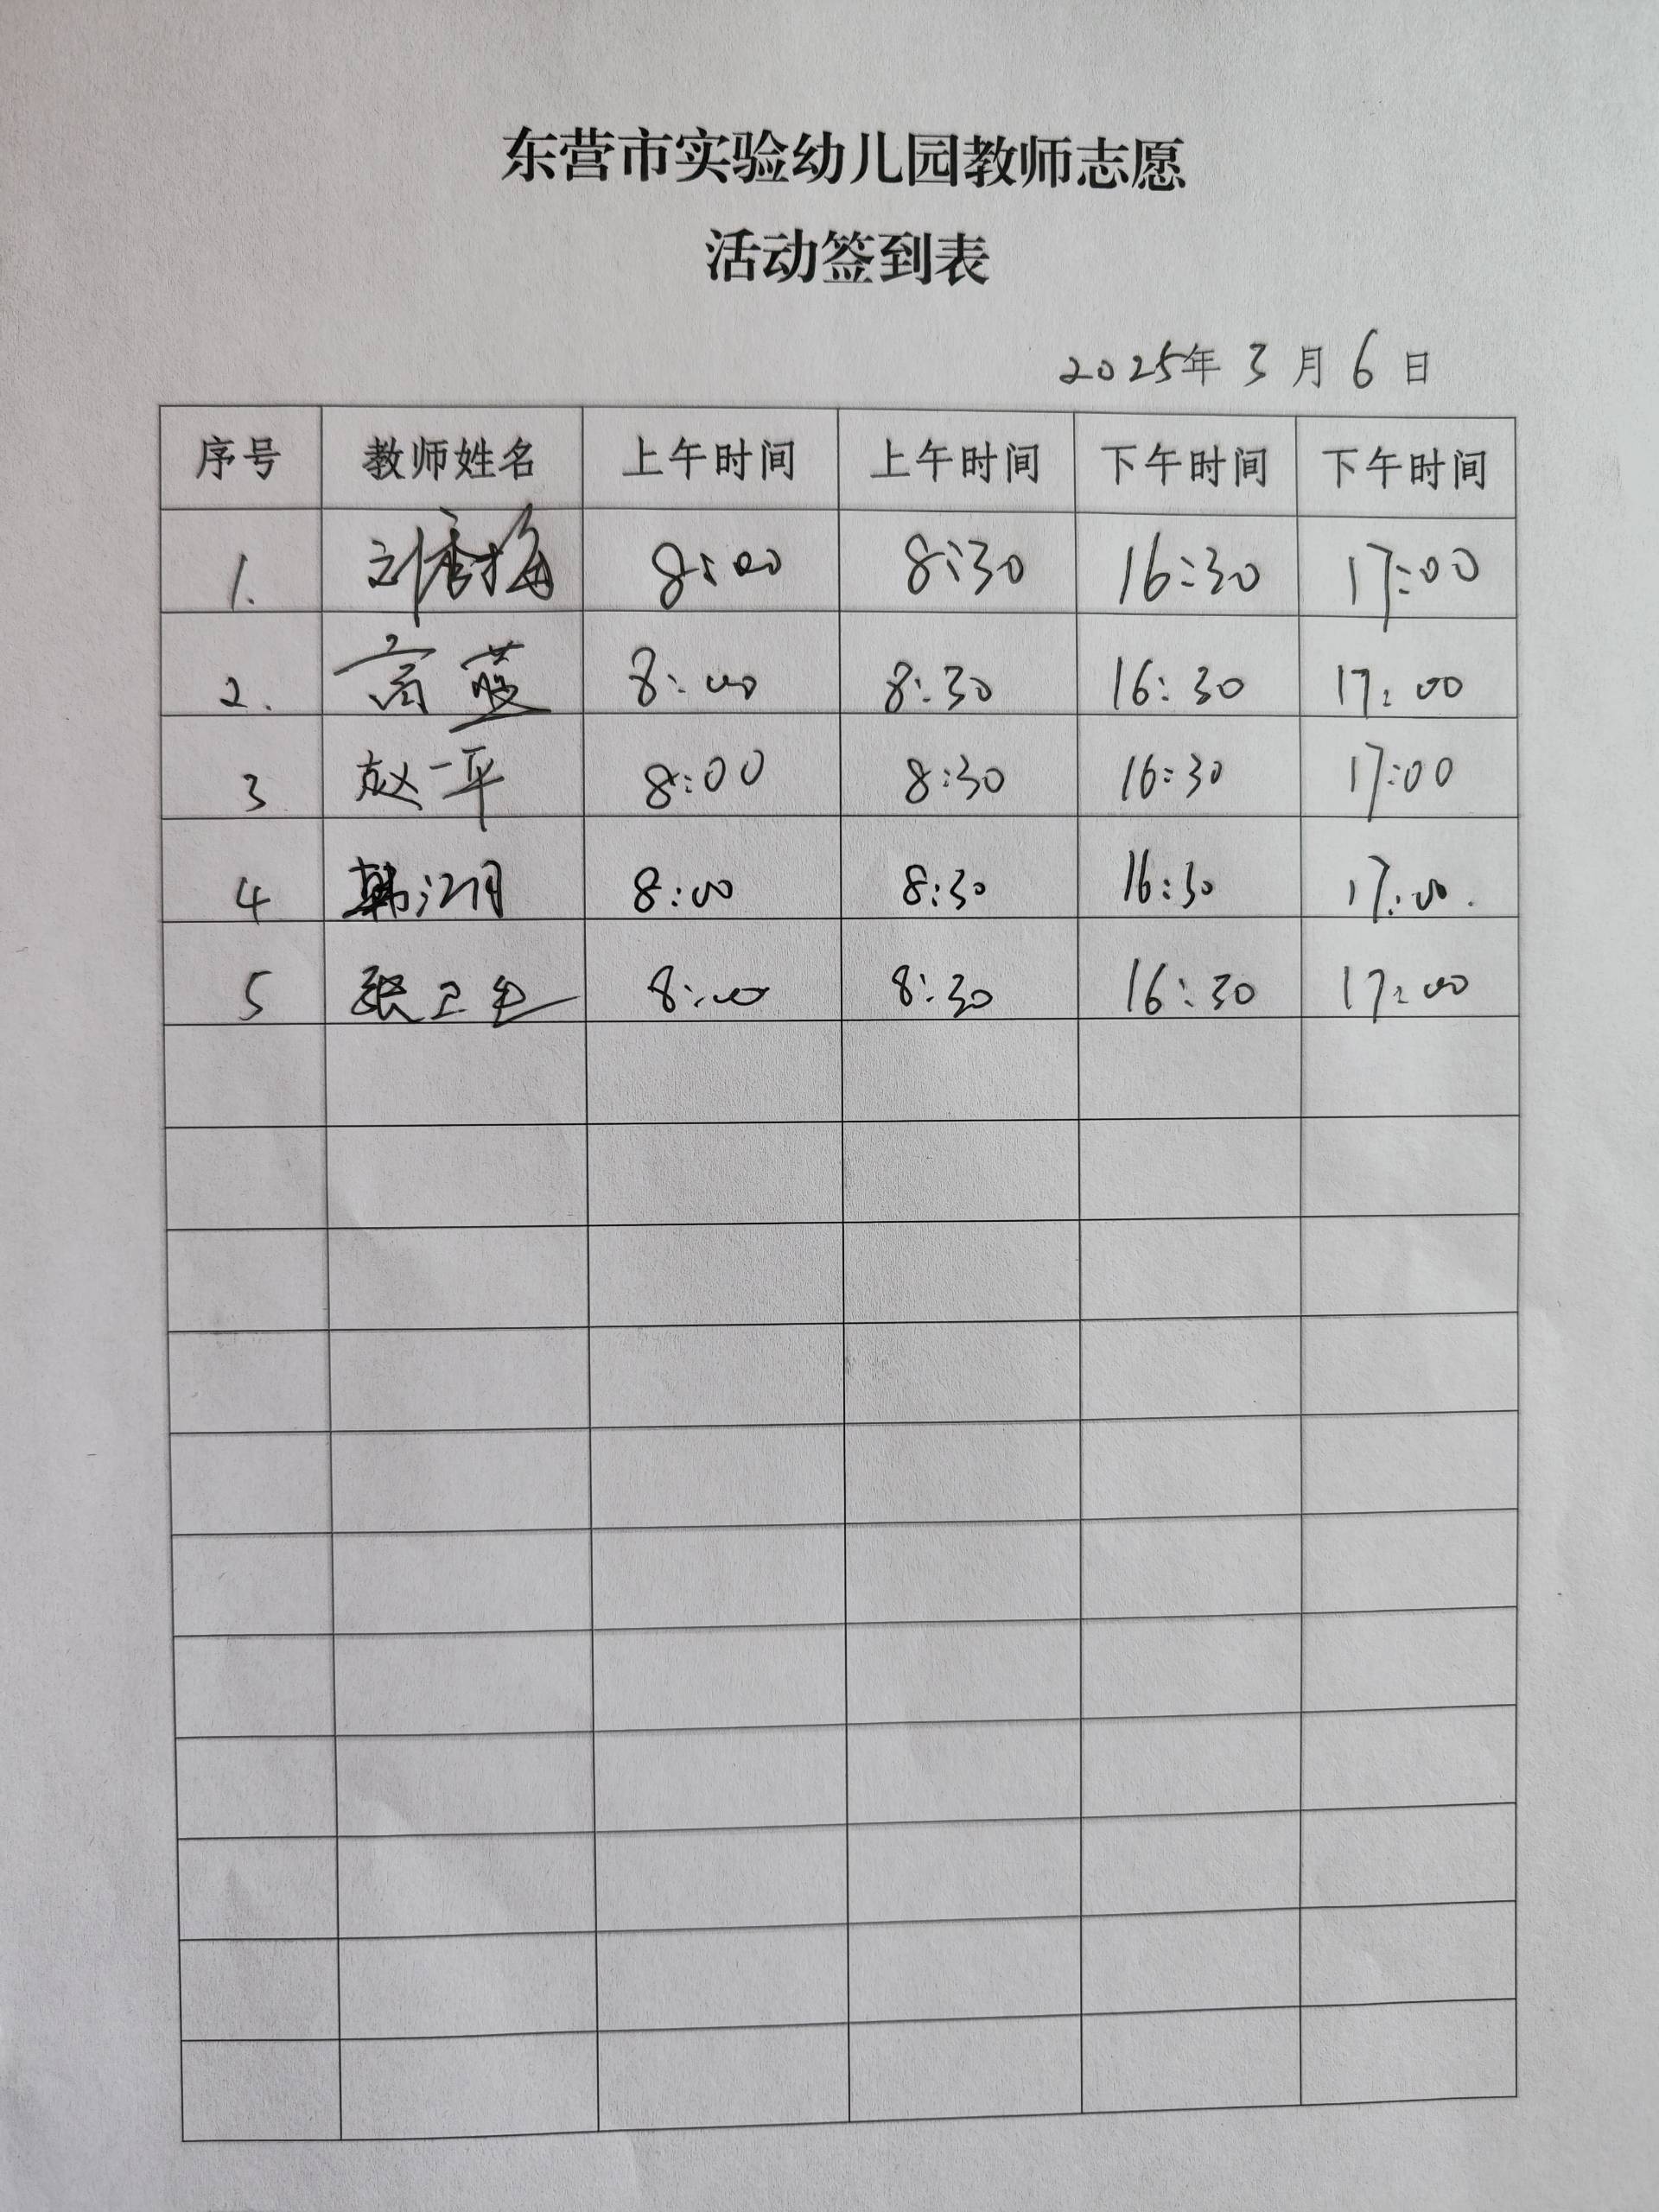 东营市实验幼儿园教师志愿
活动签到表
2025年 3 月 6 日
序号 教师姓名 上午时间 上午时间 下午时间 下午时间
1. 刘秀梅 8:00 8:30 16:30 17:00
2. 高蓝 8:00 8:30 16:30 17:00
3 赵一平 8:00 8:30 16:30 17:00
4 韩 8:00 8:30 16:30 17:00.
5 张卫 8:00 8:30 16:30 17:00